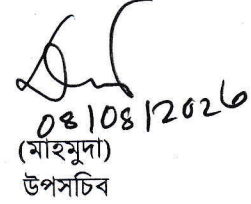 08/08/2026
(মাহমুদা)
উপসচিব